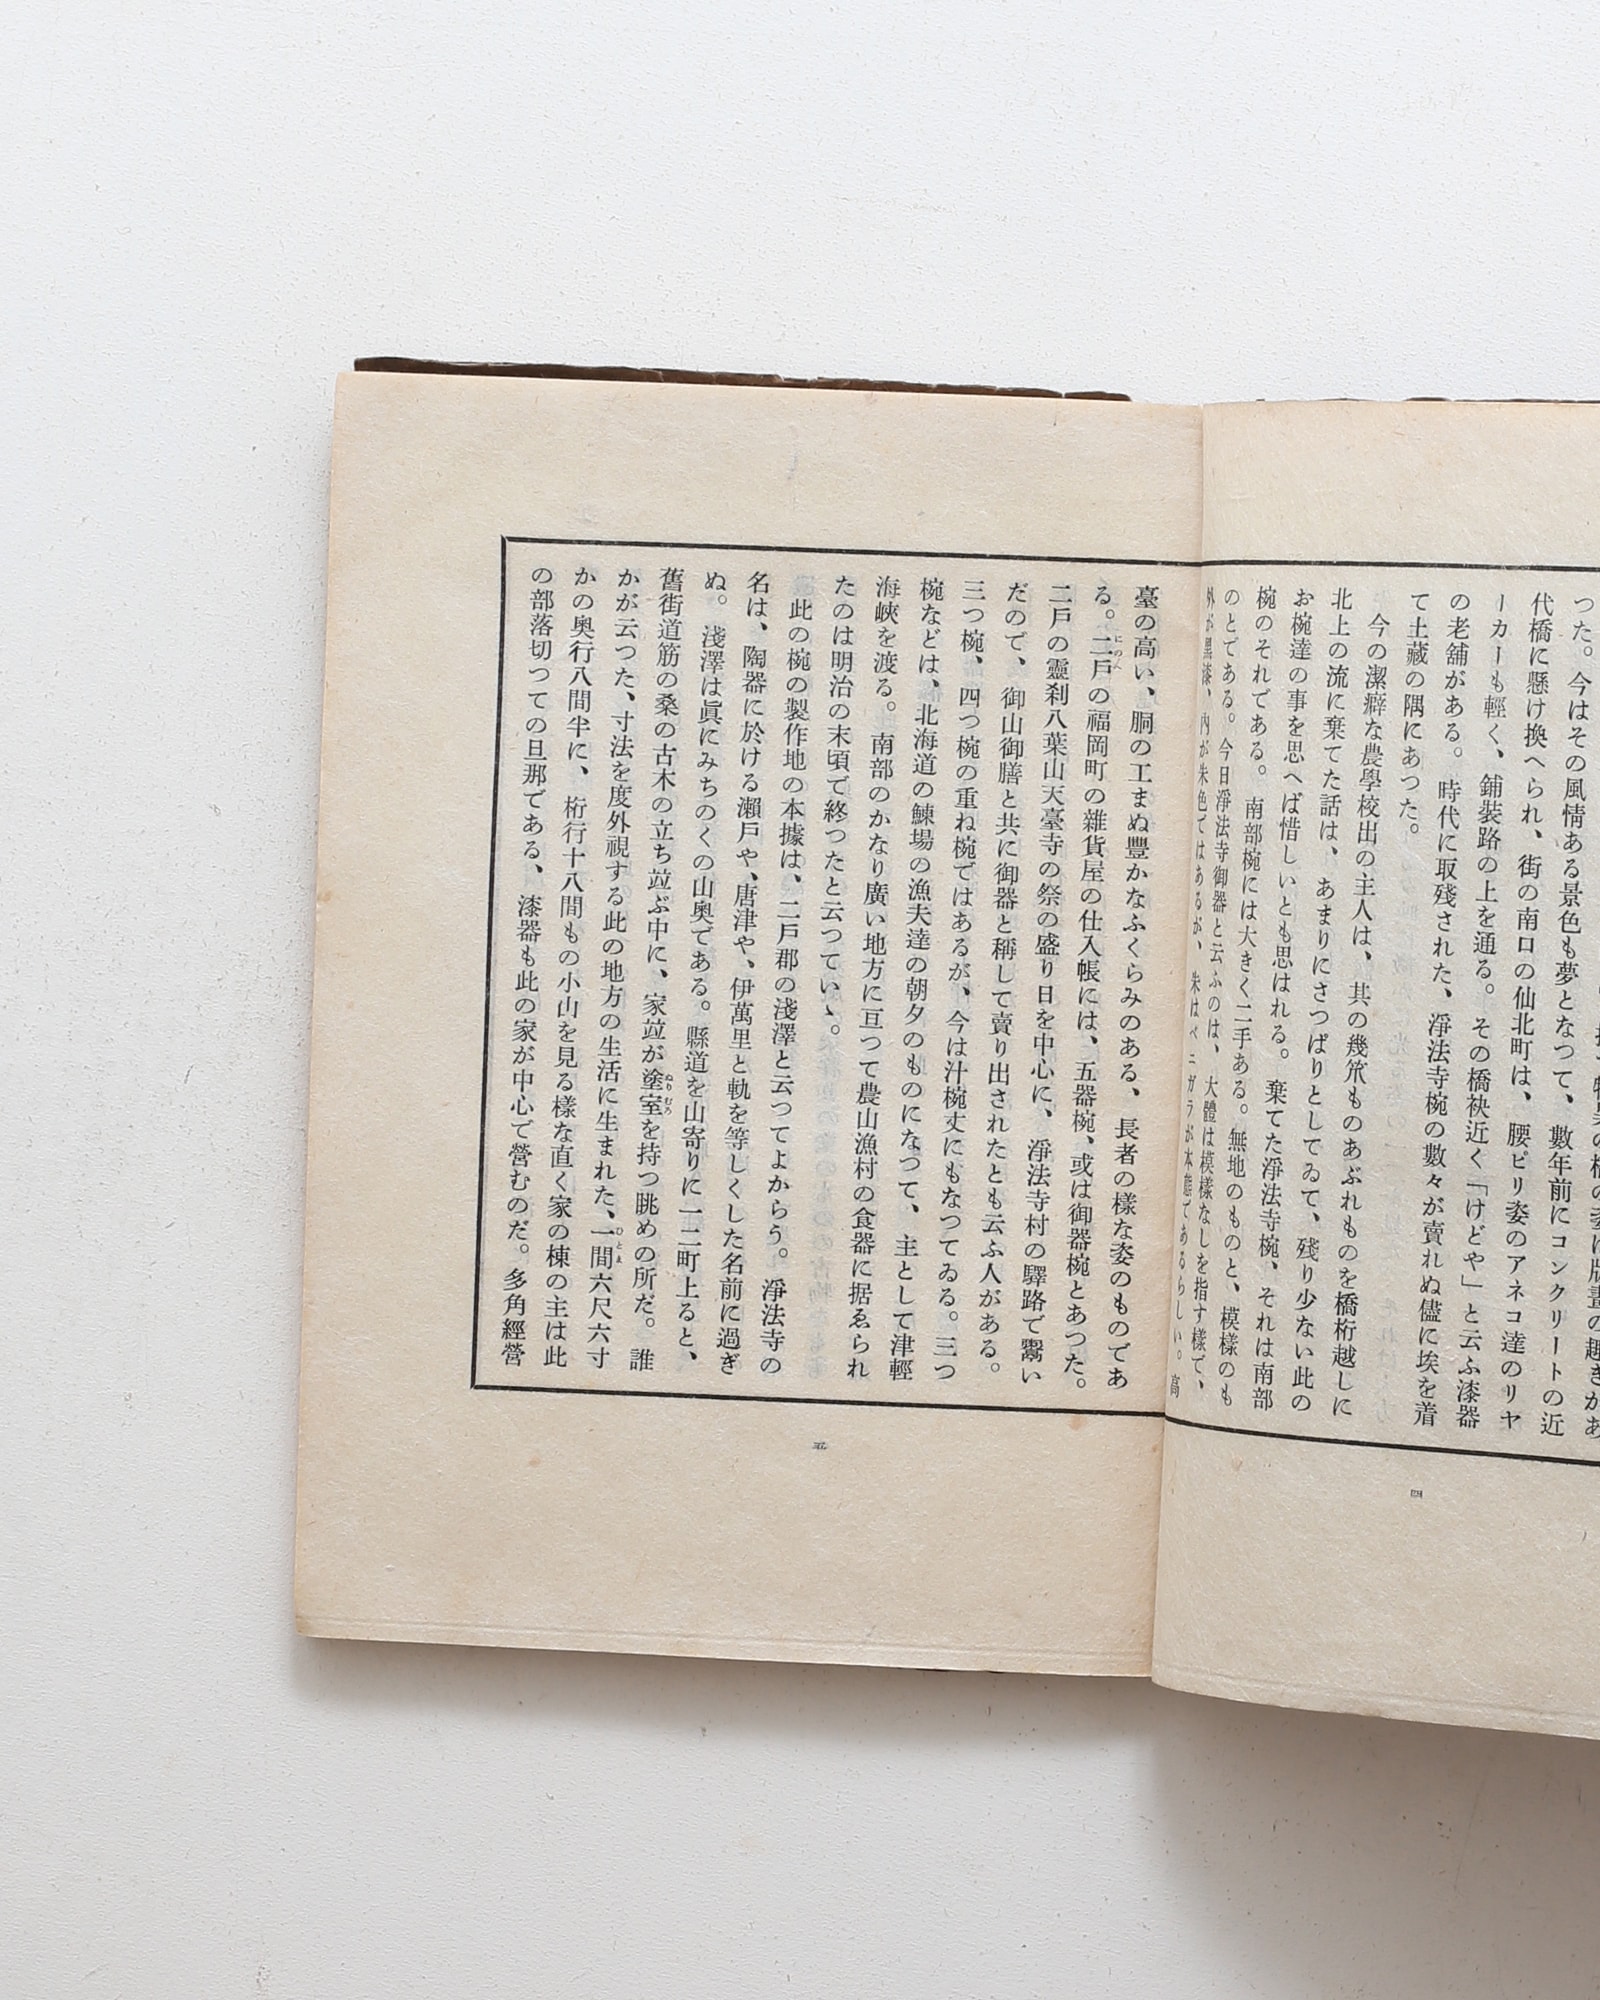 つた。今はその風情ある景色も夢となつて、數年前にコンクリートの近
代橋に懸け換へられ、街の南口の仙北町は、腰ピリ姿のアネコ達のリヤ
ーカーも輕く、鋪裝路の上を通る。その橋袂近く「けどや」と云ふ漆器
の老舗がある。時代に取殘された、淨法寺椀の數々が賣れぬ儘に埃を着
て土藏の隅にあつた。
今の潔癖な農學校出の主人は、其の幾笊ものあぶれものを橋桁越しに
北上の流に棄てた話は、あまりにさつぱりとしてゐて、殘り少ない此の
お椀達の事を思へば惜しいとも思はれる。棄てた淨法寺椀、それは南部
椀のそれである。南部椀には大きく二手ある。無地のものと、模樣のも
のとである。今日淨法寺御器と云ふのは、大體は模樣なしを指す樣で、
外が黒漆、内が朱色ではあるが、朱はベニガラが本態であるらしい。高
臺の高い、胴の工まぬ豐かなふくらみのある、長者の樣な姿のものであ
る。二戸の福岡町の雜貨屋の仕入帳には、五器椀、或は御器椀とあつた。
にのへ
二戸の靈刹八葉山天臺寺の祭の盛り日を中心に、淨法寺村の驛路で鬻い
だので、御山御膳と共に御器と稱して賣り出されたとも云ふ人がある。
三つ椀、四つ椀の重ね椀ではあるが、今は汁椀丈にもなつてゐる。三つ
椀などは、北海道の鰊場の漁夫達の朝夕のものになつて、主として津輕
海峽を渡る。南部のかなり廣い地方に亘つて農山漁村の食器に据ゑられ
たのは明治の末頃で終つたと云つていゝ。
此の椀の製作地の本據は、二戸郡の淺澤と云つてよからう。淨法寺の
名は、陶器に於ける瀬戸や、唐津や、伊萬里と軌を等しくした名前に過ぎ
ぬ。淺澤は眞にみちのくの山奧である。縣道を山寄りに一二町上ると、
舊街道筋の桑の古木の立ち竝ぶ中に、家竝が塗室を持つ眺めの所だ。誰
ぬりむろ
かが云つた、寸法を度外視する此の地方の生活に生まれた、一間六尺六寸
ひとま
かの奧行八間半に、桁行十八間もの小山を見る樣な直く家の棟の主は此
の部落切つての旦那である、漆器も此の家が中心で營むのだ。多角經營
五
四